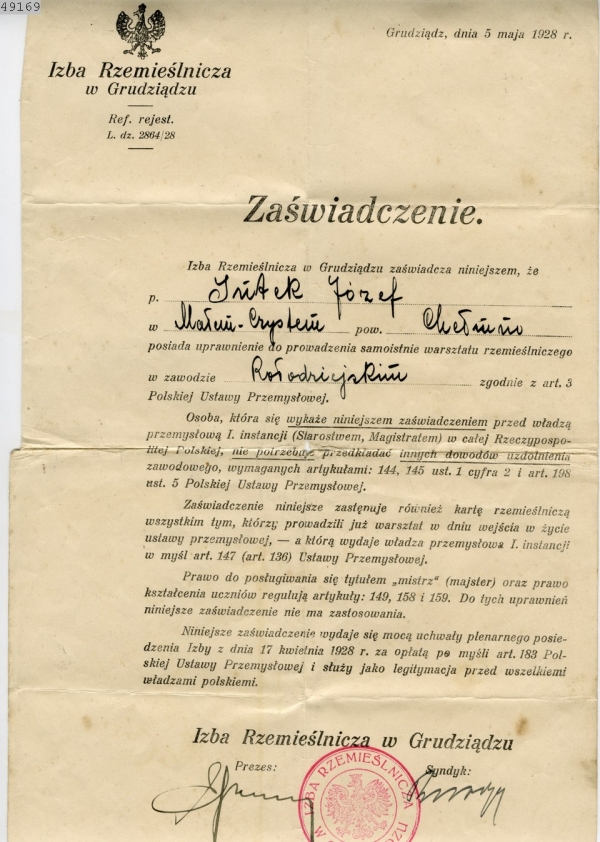 49169
Grudziądz, dnia 5 maja 1928 r.
Izba Rzemieślnicza
w Grudziądzu
Ref. rejest.
L. dz. 2864/28
Zaświadczenie.
Izba Rzemieślnicza w Grudziądzu zaświadcza niniejszem, że
p. Józef
w Małem-Czystem pow. Chełmno
posiada uprawnienie do prowadzenia samoistnie warsztatu rzemieślniczego
w zawodzie Kołodziejskim zgodnie z art. 3
Polskiej Ustawy Przemysłowej.
Osoba, która się wykaże niniejszem zaświadczeniem przed władzą
przemysłową I. instancji (Starostwem, Magistratem) w całej Rzeczypospo-
litej Polskiej, nie potrzebuje przedkładać innych dowodów uzdolnienia
zawodowego, wymaganych artykułami: 144, 145 ust. 1 cyfra 2 i art. 198
ust. 5 Polskiej Ustawy Przemysłowej.
Zaświadczenie niniejsze zastępuje również kartę rzemieślniczą
wszystkim tym, którzy prowadzili już warsztat w dniu wejścia w życie
ustawy przemysłowej, — a którą wydaje władza przemysłowa I. instancji
w myśl art. 147 (art. 136) Ustawy Przemysłowej.
Prawo do posługiwania się tytułem „mistrz" (majster) oraz prawo
kształcenia uczniów regulują artykuły: 149, 158 i 159. Do tych uprawnień
niniejsze zaświadczenie nie ma zastosowania.
Niniejsze zaświadczenie wydaje się mocą uchwały plenarnego posie-
dzenia Izby z dnia 17 kwietnia 1928 r. za opłatą po myśli art. 183 Pol-
skiej Ustawy Przemysłowej i służy jako legitymacja przed wszelkiemi
władzami polskiemi.
Izba Rzemieślnicza w Grudziądzu
Prezes: Syndyk:
IZBA RZEMIEŚLNICZA